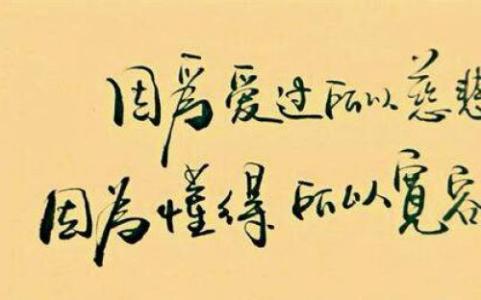 因爲爱过所以慈悲
因为懂得所以寛容